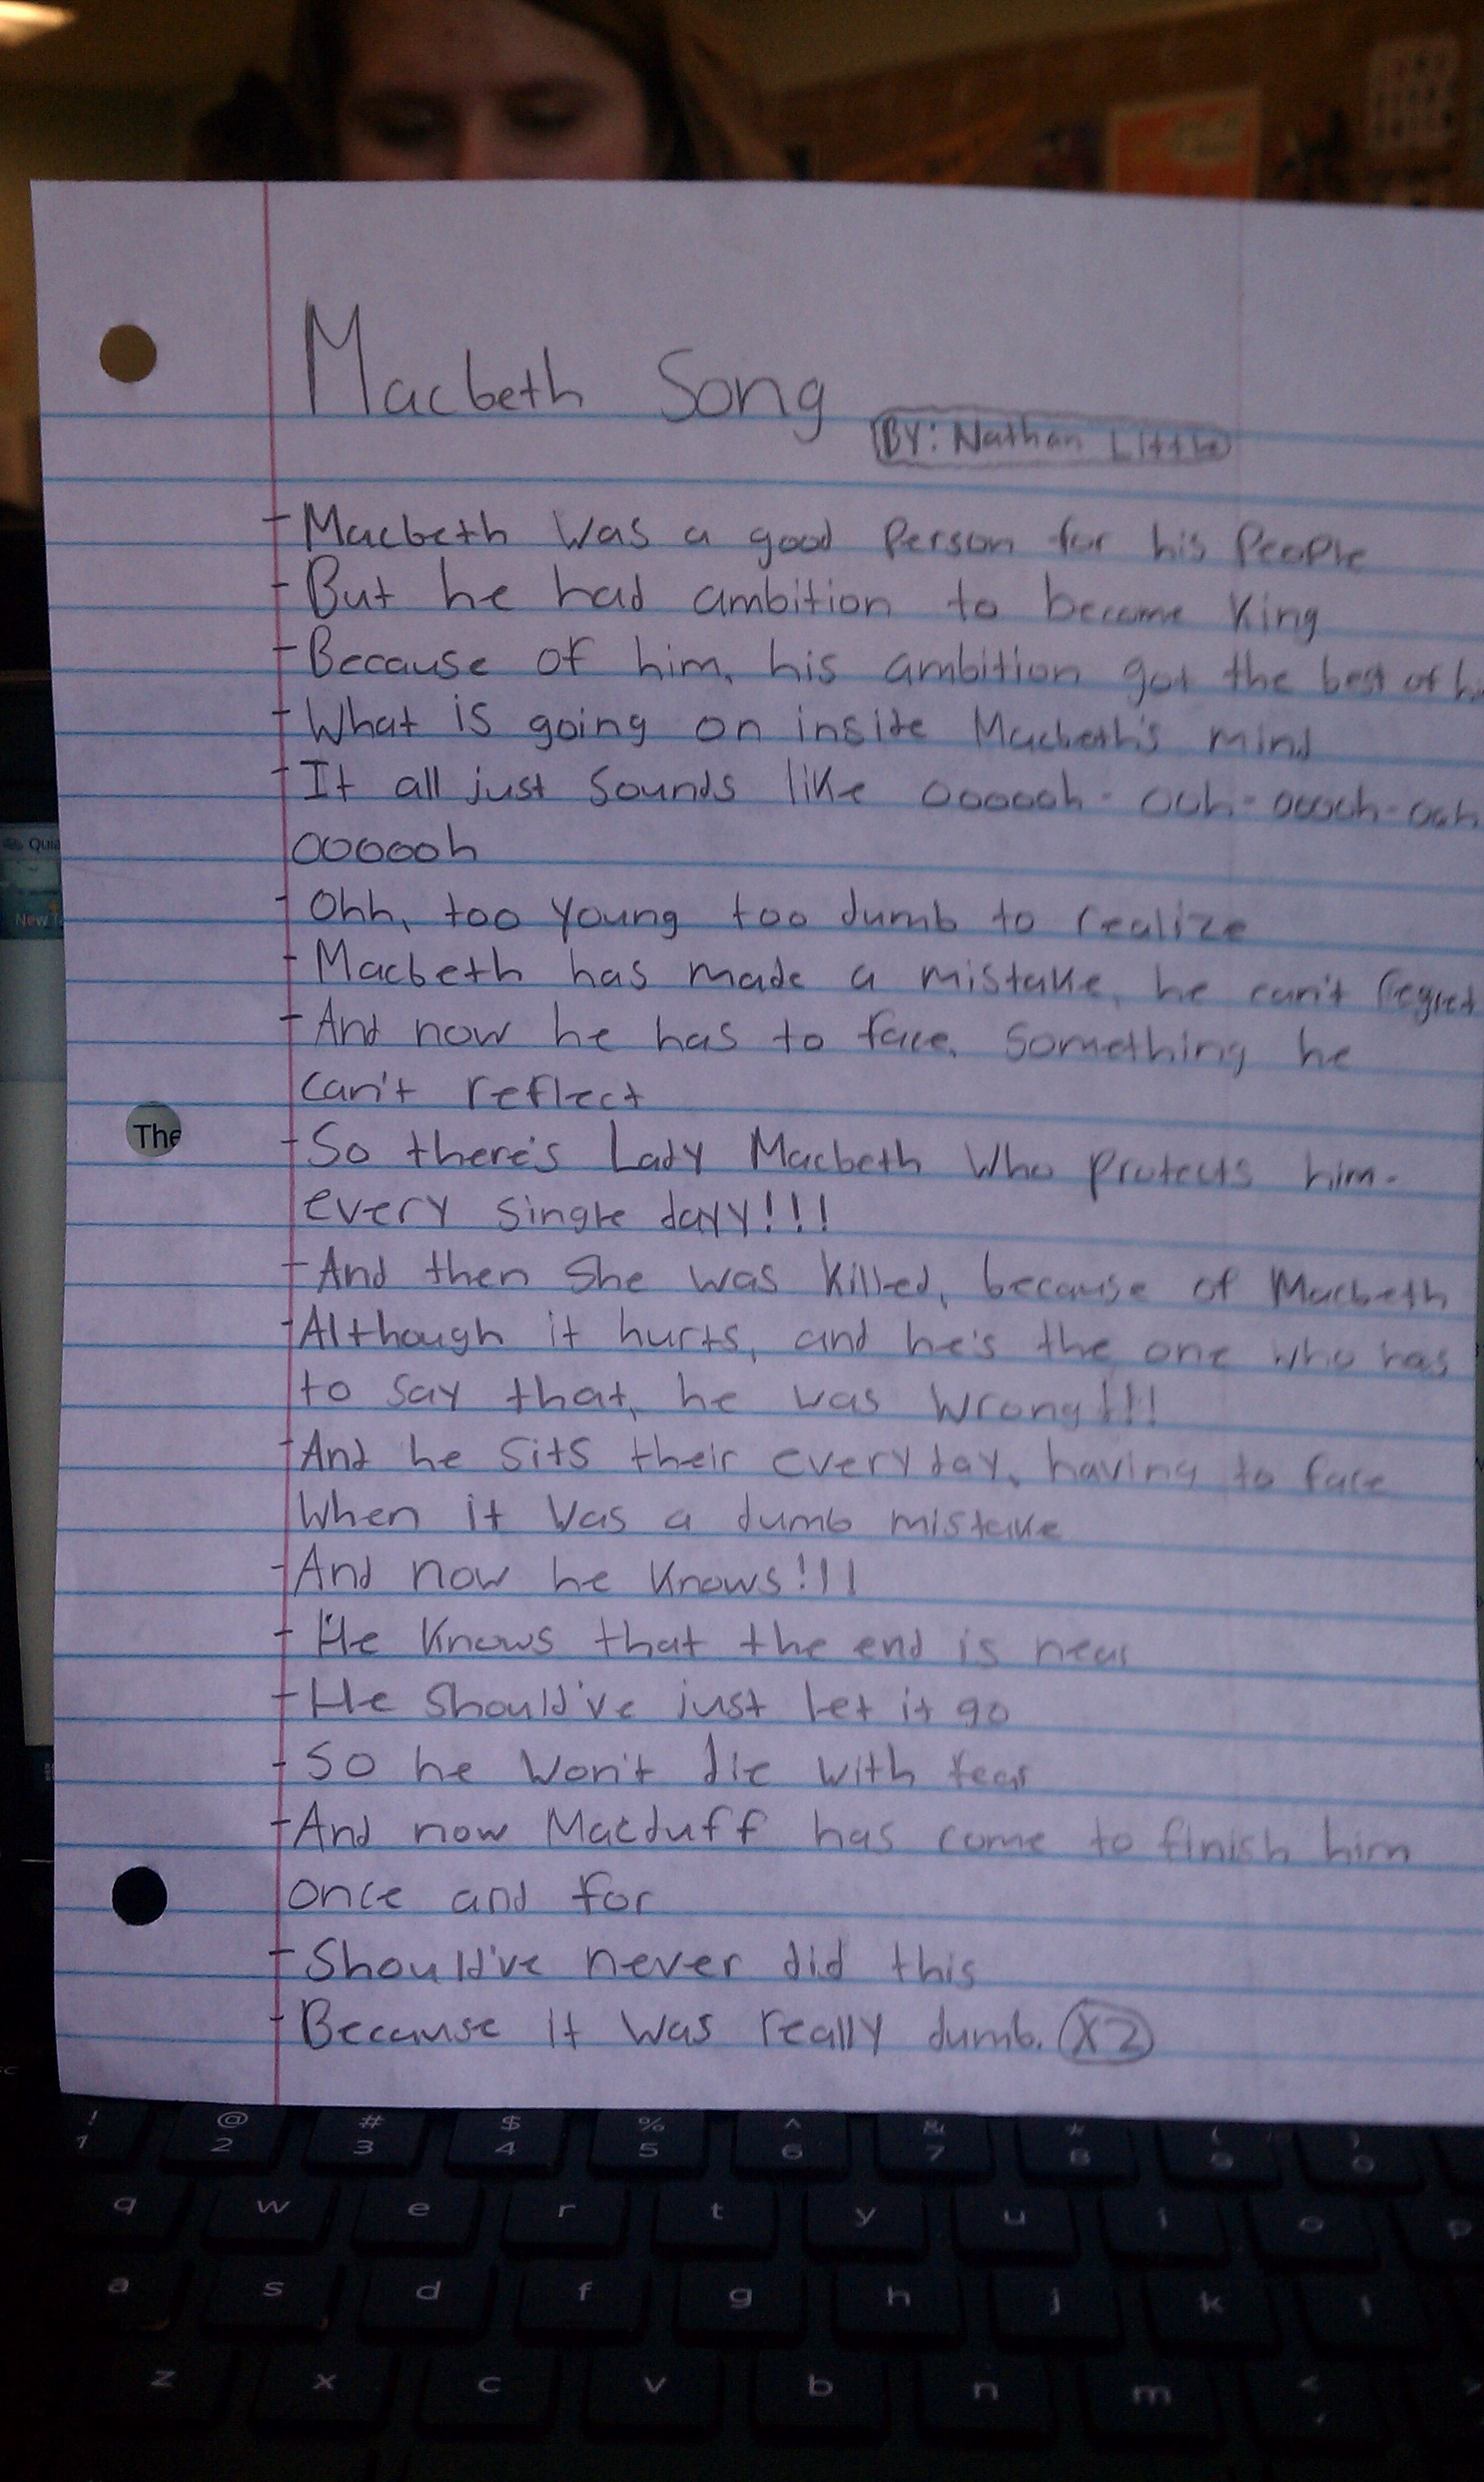 Macbeth Song
BY: Nathan Little
- Macbeth was a good person for his people
- But he had ambition to become King
- Because of him, his ambition got the best of
- What is going on inside Macbeth's mind
- It all just sounds like oooooh - ooh - ooooh - ooh
oooooh
- Ohh, too young too dumb to realize
- Macbeth has made a mistake, he can't regret
- And now he has to face, something he
can't reflect
- So there's Lady Macbeth who protects him.
every single dayy!!!
- And then she was killed, because of Macbeth
- Although it hurts, and he's the one who has
to say that, he was wrong!!!
- And he sits their everyday, having to face
when it was a dumb mistake
- And now he knows!!!
- He knows that the end is near
- He should've just let it go
- So he won't die with fear
- And now Macduff has come to finish him
once and for
- Should've never did this
- Because it was really dumb. X2
Quia
New T
The
! @ # $ % ^ & * ( )
1 2 3 4 5 6 7 8 9 0
q w e r t y u i o p
a s d f g h j k l
z x c v b n m < >
,